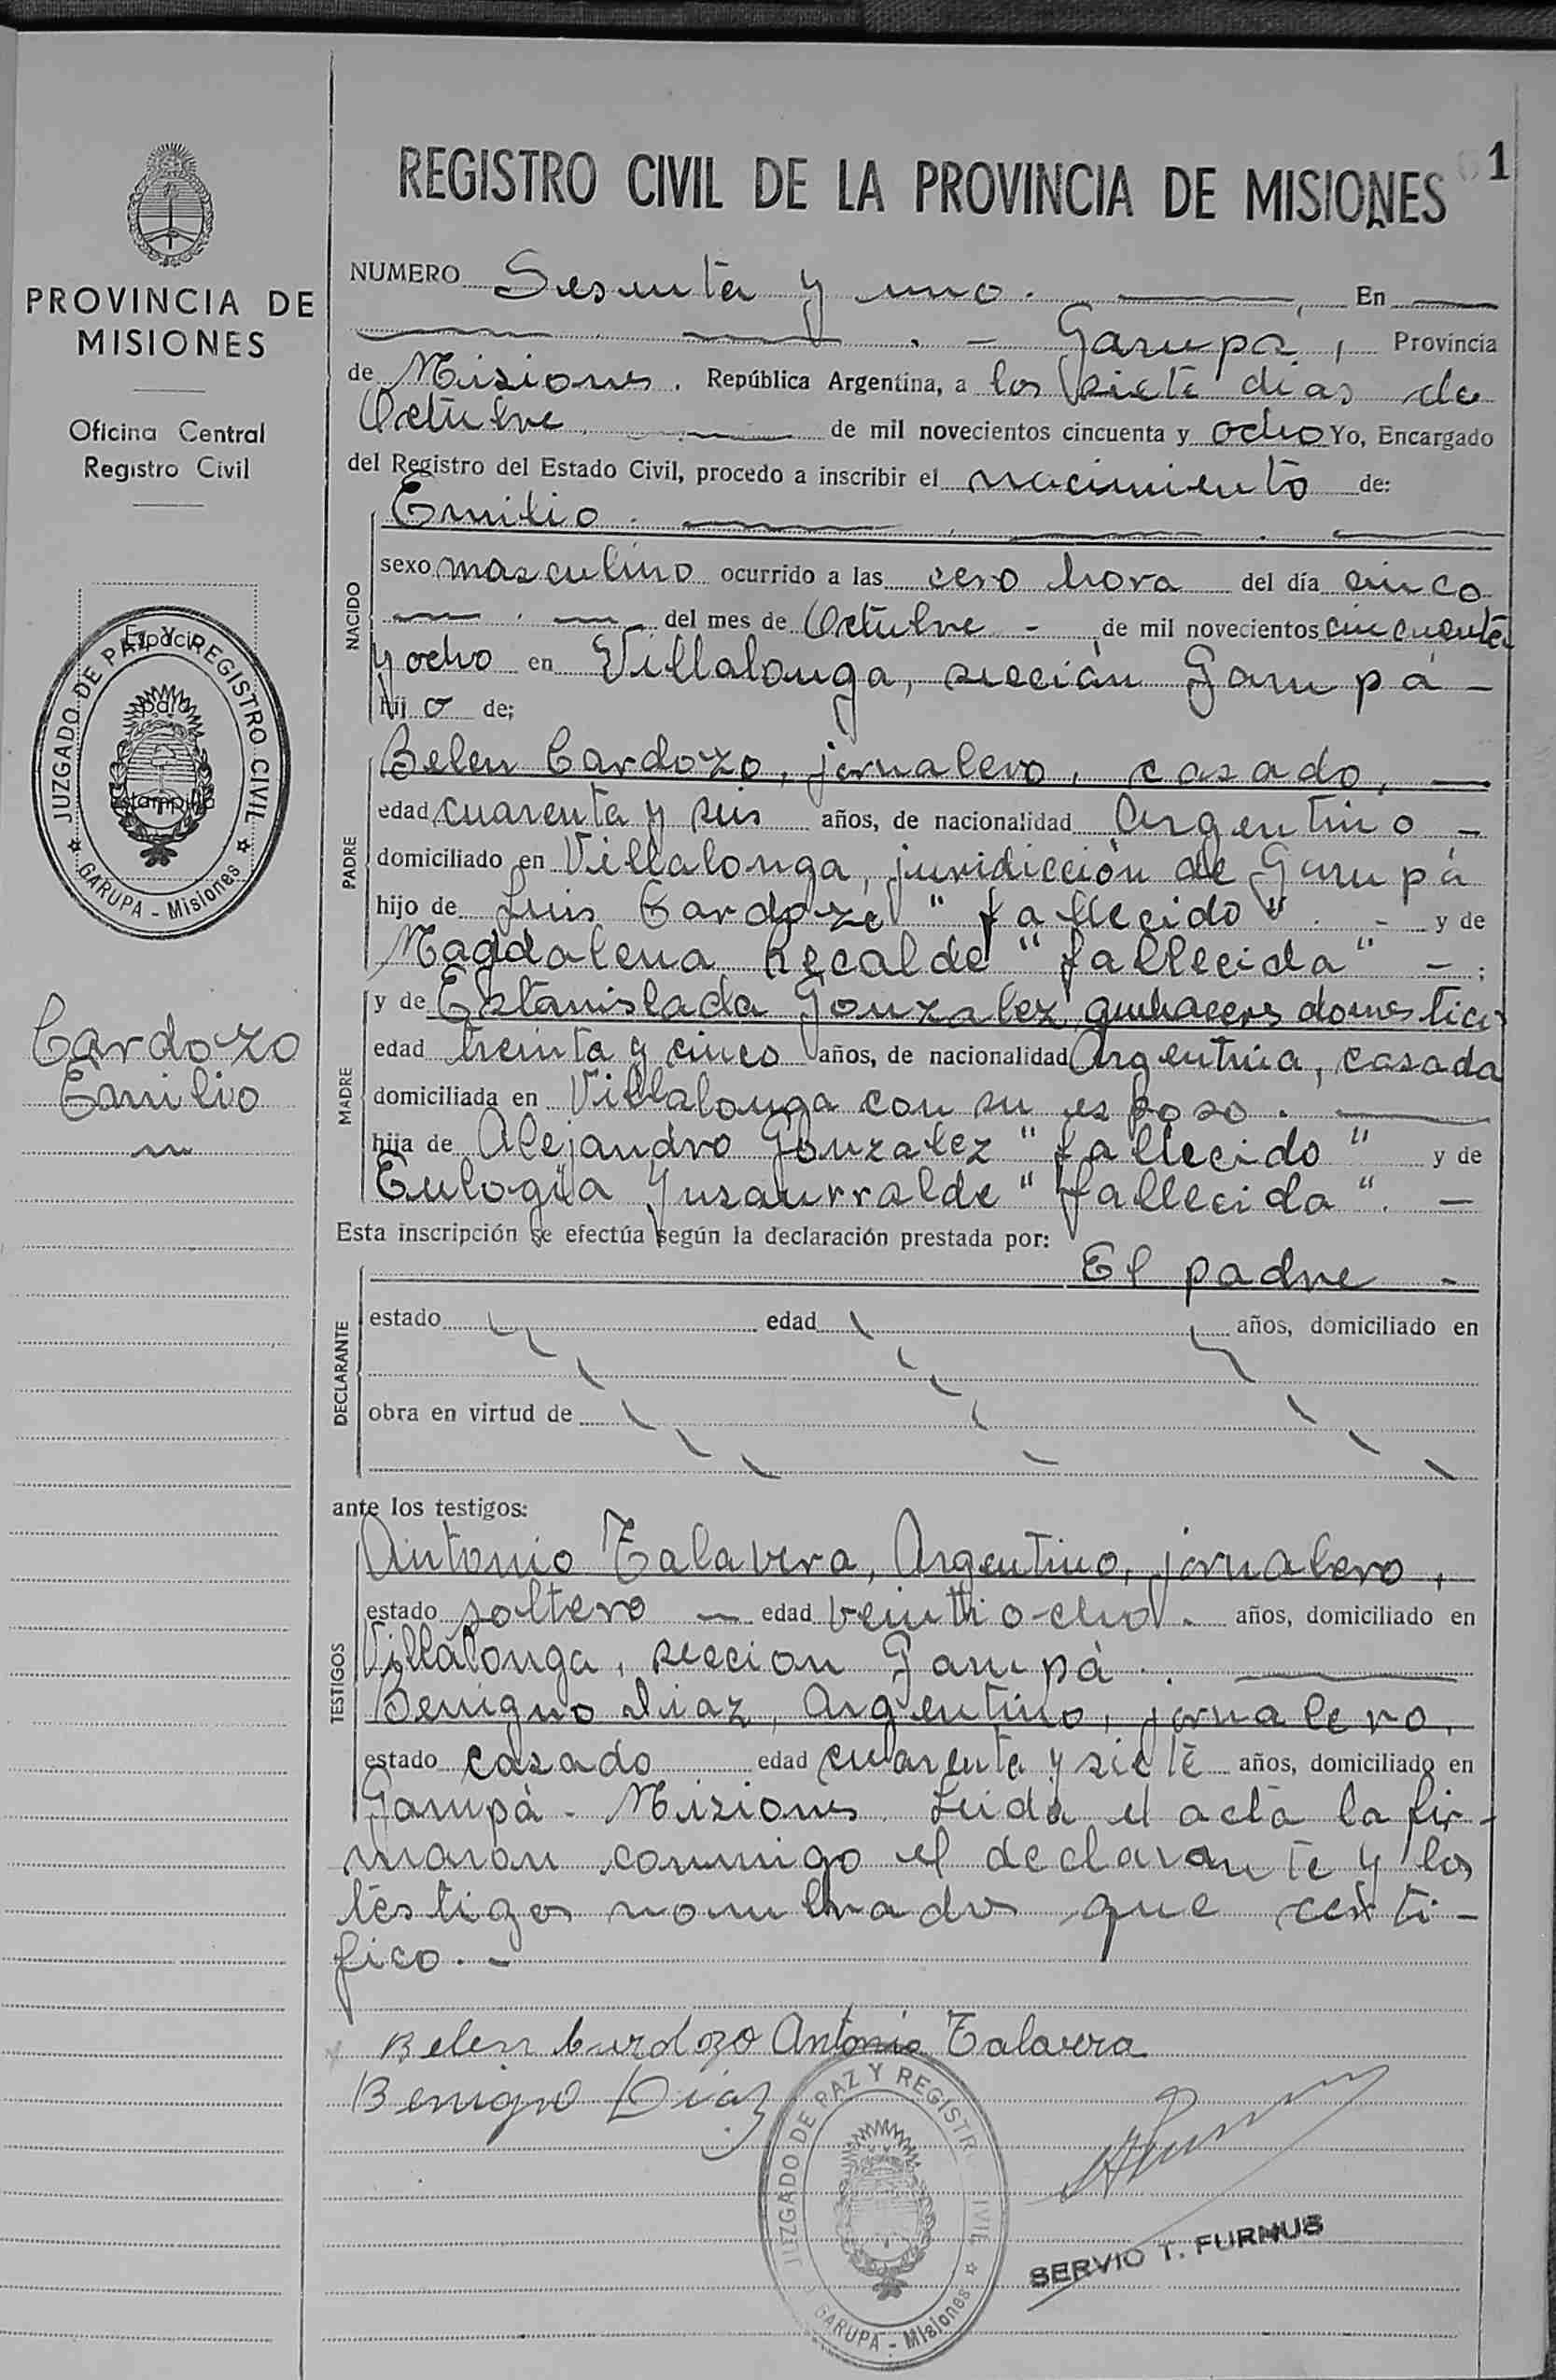 REGISTRO CIVIL DE LA PROVINCIA DE MISIONES
61
PROVINCIA DE
MISIONES
Oficina Central
Registro Civil
Espacio
para
estampilla
JUZGADO DE PAZ Y REGISTRO CIVIL
GARUPA - Misiones
Cardozo
Emilio
NUMERO Sesenta y uno. , En
Garupá, Provincia
de Misiones. República Argentina, a los siete dias de
Octubre de mil novecientos cincuenta y ocho Yo, Encargado
del Registro del Estado Civil, procedo a inscribir el nacimiento de:
Emilio.
NACIDO
sexo masculino ocurrido a las cero hora del día cinco
del mes de Octubre - de mil novecientos cincuenta
y ocho en Villalonga, sección Garupá -
hij o de;
PADRE
Belen Cardozo, jornalero, casado,
edad cuarenta y seis años, de nacionalidad Argentino -
domiciliado en Villalonga, juridicción de Garupá
hijo de Luis Cardozo "fallecido". - y de
Magdalena Recalde "fallecida" - ;
MADRE
y de Estanislada Gonzalez, quehaceres domesticos
edad treinta y cinco años, de nacionalidad Argentina, casada
domiciliada en Villalonga con su esposo.
hija de Alejandro Gonzalez "fallecido" y de
Eulogia Ynsaurralde "fallecida". -
Esta inscripción se efectúa según la declaración prestada por:
El padre -
DECLARANTE
estado edad años, domiciliado en
obra en virtud de
ante los testigos:
TESTIGOS
Antonio Talavera, Argentino, jornalero,
estado soltero - edad veintiocho - años, domiciliado en
Villalonga, seccion Garupá.
Benigno Diaz, Argentino, jornalero,
estado casado edad cuarenta y siete años, domiciliado en
Garupá - Misiones. Leida el acta la fir-
maron conmigo el declarante y los
testigos nombrados que certi-
fico. -
Belen Cardozo Antonio Talavera
Benigno Diaz
JUZGADO DE PAZ Y REGISTRO CIVIL
GARUPA - Misiones
SERVIO T. FURNUS